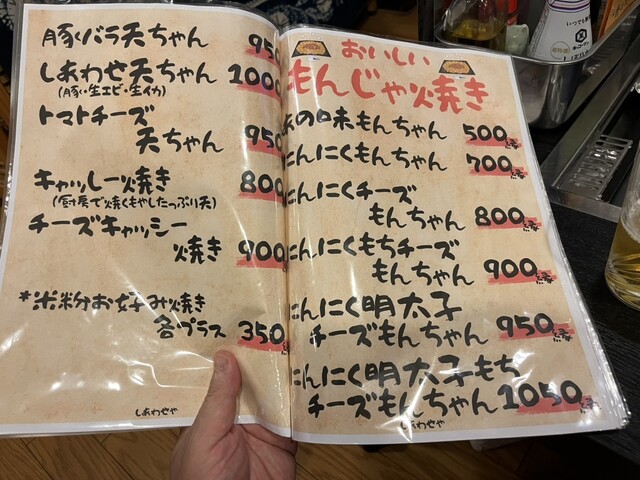 豚バラ天ちゃん 950
しあわせ天ちゃん 1000
(豚・生エビ・生イカ)
トマトチーズ
天ちゃん 950
キャッシー焼き 800
(厨房で焼くもやしたっぷり天)
チーズキャッシー
焼き 900
*米粉お好み焼き
各プラス 350
しあわせや
おいしい
もんじゃ焼き
末の味もんちゃん 500縁
にんにくもんちゃん 700縁
にんにくチーズ
もんちゃん 800縁
にんにくもちチーズ
もんちゃん 900縁
にんにく明太子
チーズもんちゃん 950縁
にんにく明太子もち
チーズもんちゃん 1050縁
しあわせや